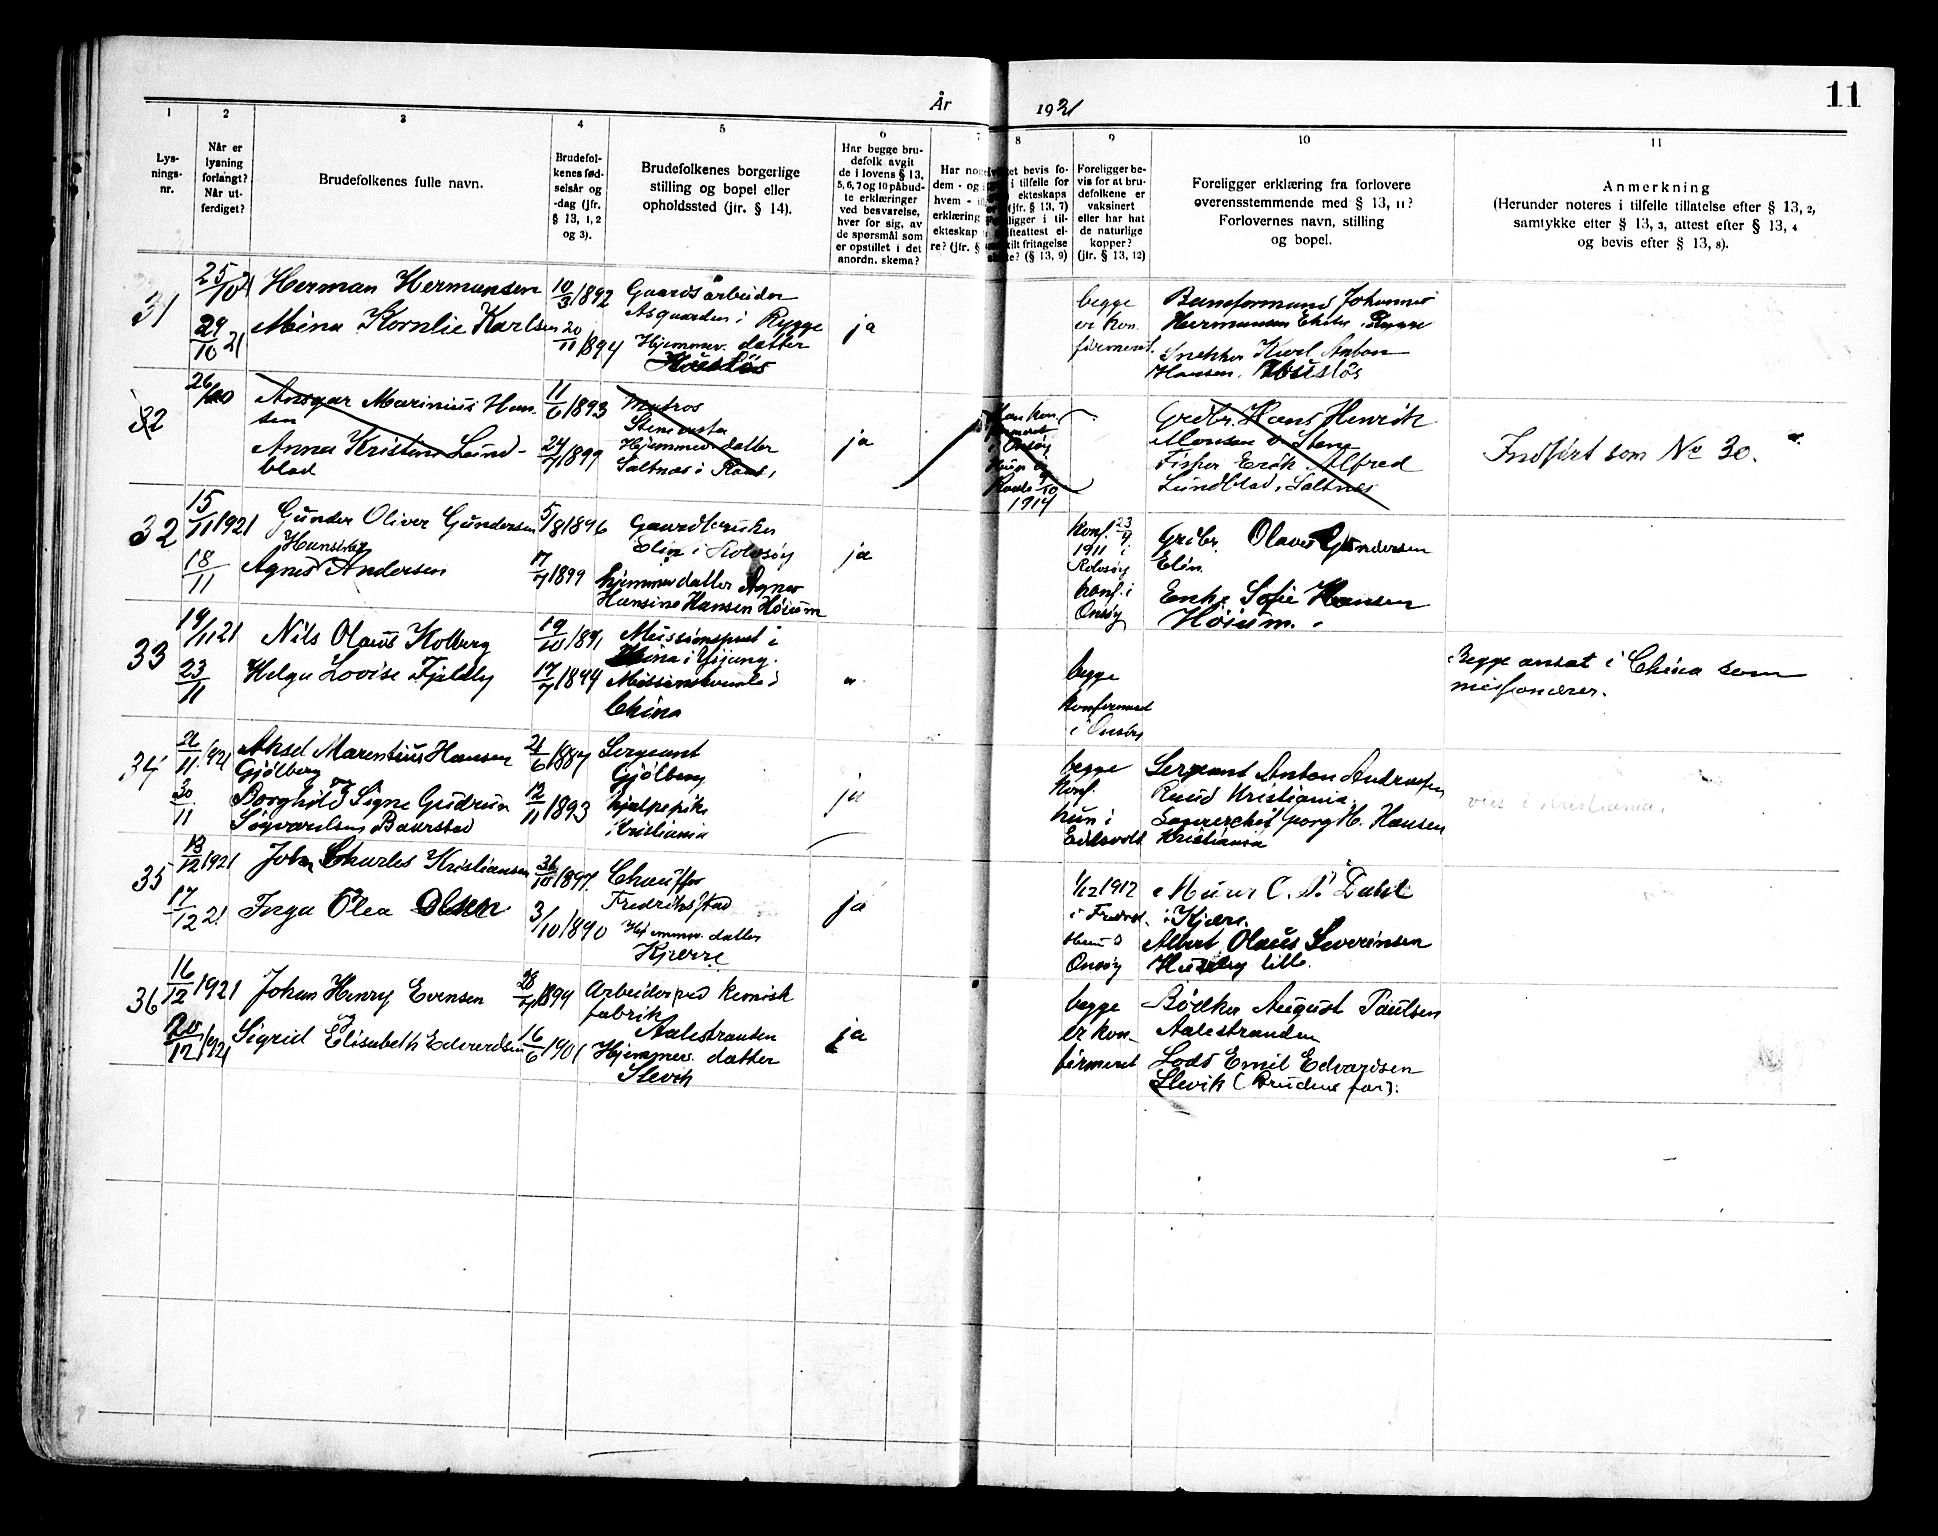 År 1921
11
1
2
3
4
5
6
7
8
9
10
11
Lys-
nings-
nr.
Når er
lysning
forlangt?
Når ut-
ferdiget?
Brudefolkenes fulle navn.
Brudefol-
kenes fød-
selsår og
-dag (jfr.
§ 13, 1, 2
og 3).
Brudefolkenes borgerlige
stilling og bopel eller
opholdssted (jfr. § 14).
Har begge bru-
defolk avgit
de i lovens § 13,
5, 6, 7 og 10 påbud-
te erklæringer
ved besvarelse,
hver for sig, av
de spørsmål som
er opstillet i det
anordn. skema?
Har nog
dem - og i
hvem - 
erklæring
ekteskap
re? (jfr. §
et bevis fo-
i tilfelle for
ekteskaps
(jfr. § 13, 7)
ligger i til-
ifteattest el-
kilt fritagelse
? (§ 13, 9)
Foreligger be-
vis for at bru-
defolkene er
vaksinert
eller har hat
de naturlige
kopper?
(jfr. § 13, 12)
Foreligger erklæring fra forlovere
overensstemmende med § 13, 11?
Forlovernes navn, stilling
og bopel.
Anmerkning
(Herunder noteres i tilfelle tillatelse efter § 13, 2,
samtykke efter § 13, 3, attest efter § 13, 4
og bevis efter § 13, 8).
31
25/10 21
29/10 21
Herman Hermansen
Mina Kornelie Karlsen
10/3 1892
20/11 1894
Gaardsarbeider
i Rygge
Hjemmev. datter
Huseløs
ja
begge
er kon-
firmeret.
Baneformand Johannes
Hermansen
Snekker Karl Anton
Hansen. Huseløs
32
26/10
Ansgar Marinius Han-
sen
Anna Kristine Lund-
blad
11/6 1893
24/7 1899
Matros
Stene
Hjemmev. datter
Saltnes i Raade,
ja
Han kon-
firmeret
Onsøy
Hun
Raade
1914
Grdbr. Hans Henrik
Monsen Stene
Fisker Erik Alfred
Lundblad, Saltnes
Indført som No 30.
32
15/11 1921
18/11
Gunder Oliver Gundersen
Agnes Andersen
5/8 1896
17/7 1899
Gaardbruker
Elin i Rolvsøy
hjemmev. datter Agnes
Hansine Hansen Høium
ja
Konf. 23/4
1911 i
Rolvsøy
konf. i
Onsøy
Grdbr. Olaves Gundersen
Elin.
Enke Sofie Hansen
Høium.
33
19/11 21
23/11
Nils Olaus Kolberg
Helga Lovise Fjeldly
19/10 1891
17/7 1894
Missionsprest i
Kina i Yiyang.
Missionskvinde i
China
"
begge
konfirmeret
i Onsøy
Begge ansat i China som
misjonærer.
34
26/11 1921
30/11
Aksel Marentius Hansen
Gjølberg
Borghild Signe Gudrun
Sigvardsen Baarstad
21/6 1887
12/11 1893
Sergeant
Gjølberg
hjælpepike
Kristiania
ja
begge
konf.
hun i
Eidsvold
Sergeant Anton Andreasen
Ruud Kristiania.
Georg H. Hansen
Kristiania
vies i Kristiania.
35
13/12 1921
17/12 21
John Charles Kristiansen
Inga Olea Olsen
1897.
3/10 1890
Chauffør
Fredrikstad
Hjemmev. datter
Kjærre
ja
1/12 1912
i Fredrst.
Hun i
Onsøy
Murer C. P. Dahl
i Kjære.
Albert Olaus Severinsen
Huseby lille.
36
16/12 1921
20/12 1921
Johan Henry Evensen
Sigrid Elisabeth Edvardsen
28/7 1894
16/6 1901
Arbeider ved kemisk
fabrik
Aalestranden
Hjemmev. datter
Slevik
ja
begge
er kon-
firmeret
Bødker August Paulsen
Aalestranden
Lods Emil Edvardsen
Slevik (Brudens far).